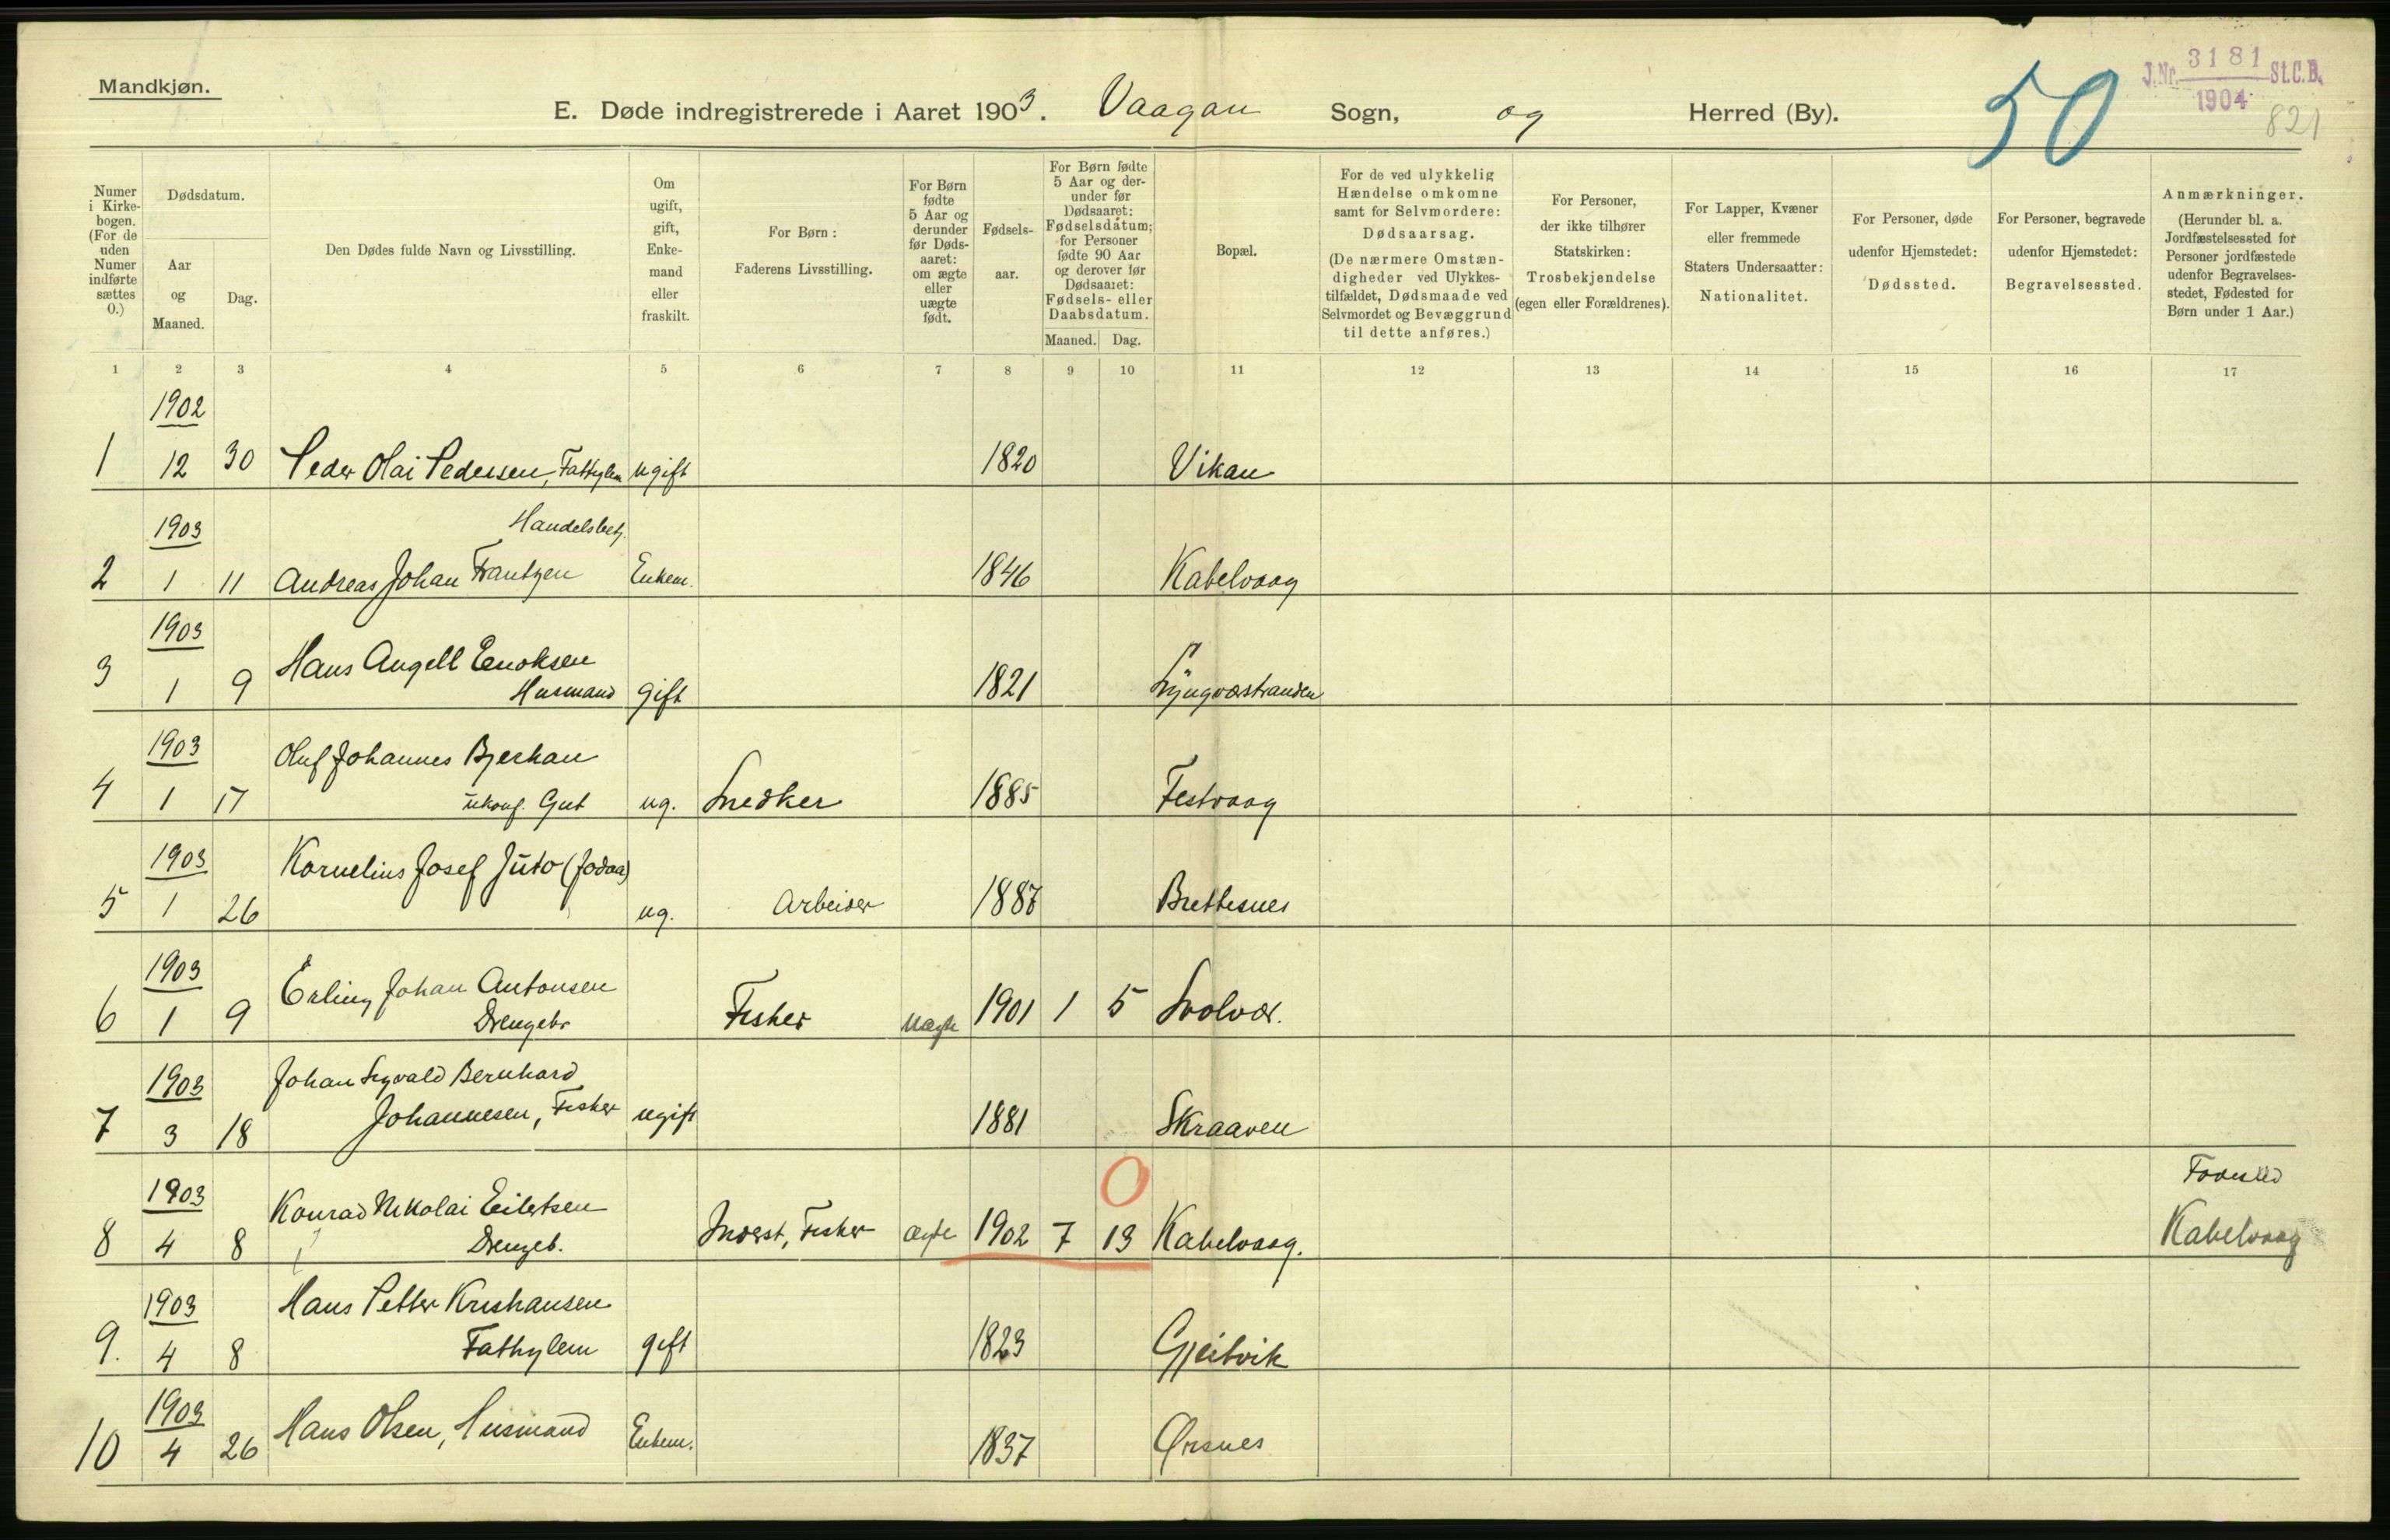 Mandkjøn.
E. Døde indregistrerede i Aaret 1903. Vaagan Sogn, og Herred (By).
50
J.Nr. 3181 St.C.B.
1904
821
Numer i Kirkebogen. (For de uden Numer indførte sættes 0.)
Dødsdatum.
Aar og Maaned.
Dag.
Den Dødes fulde Navn og Livsstilling.
Om ugift, gift, Enkemand eller fraskilt.
For Børn: Faderens Livsstilling.
For Børn fødte 5 Aar og derunder før Dødsaaret: om ægte eller uægte født.
Fødselsaar.
For Børn fødte 5 Aar og derunder før Dødsaaret: Fødselsdatum; for Personer fødte 90 Aar og derover før Dødsaaret: Fødsels- eller Daabsdatum.
Maaned. Dag.
Bopæl.
For de ved ulykkelig Hændelse omkomne samt for Selvmordere: Dødsaarsag. (De nærmere Omstændigheder ved Ulykkestilfældet, Dødsmaade ved Selvmordet og Bevæggrund til dette anføres.)
For Personer, der ikke tilhører Statskirken: Trosbekjendelse (egen eller Forældrenes).
For Lapper, Kvæner eller fremmede Staters Undersaatter: Nationalitet.
For Personer, døde udenfor Hjemstedet: Dødssted.
For Personer, begravede udenfor Hjemstedet: Begravelsessted.
Anmærkninger. (Herunder bl. a. Jordfæstelsessted for Personer jordfæstede udenfor Begravelsesstedet, Fødested for Børn under 1 Aar.)
1 2 3 4 5 6 7 8 9 10 11 12 13 14 15 16 17
1902
1 12 30 Peder Olai Pedersen, Fattiglem ugift 1820 Vikan
1903 Handelsbetj.
2 1 11 Andreas Johan Frantzen Enkem. 1846 Kabelvaag
1903 Hans Angell Enoksen
3 1 9 Husmand gift 1821 Lyngværstranden
1903 Oluf Johannes Bjerkan
4 1 17 ukonf. Gut ug. Snedker 1885 Festvaag
1903 Kornelius Josef Juto (Jodaa)
5 1 26 ug. Arbeider 1887 Brettesnes
1903 Erling Johan Antonsen
6 1 9 Drengebr Fisker uægte 1901 1 5 Svolvær.
1903 Johan Sigvald Bernhard
7 3 18 Johannesen, Fisker ugift 1881 Skraaven
1903 Konrad Nikolai Eilertsen 0 Fødested
8 4 8 Drengeb. Inderst, Fisker ægte 1902 7 13 Kabelvaag. Kabelvaag
1903 Hans Petter Kristiansen
9. 4 8 Fattiglem gift 1823 Gjeitvik
1903
10 4 26 Hans Olsen, Husmand Enkem. 1837 Ørsnes